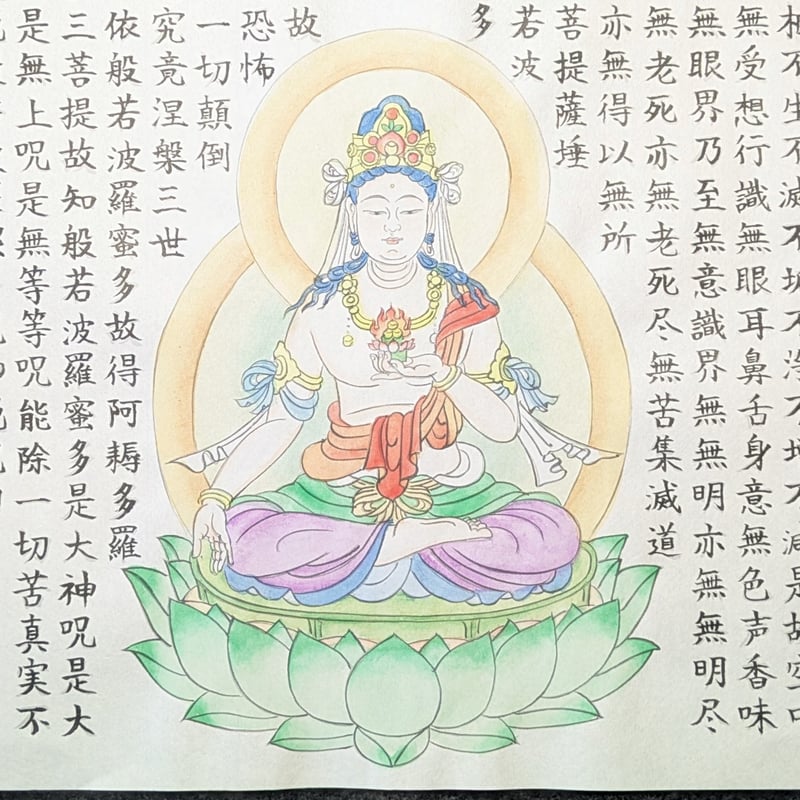 相不生不滅不垢不浄不増不減是故空中
無受想行識無眼耳鼻舌身意無色声香味
無眼界乃至無意識界無無明亦無無明尽
無老死亦無老死尽無苦集滅道
亦無得以無所
菩提薩埵
若波
多
故
恐怖
一切顛倒
究竟涅槃三世
依般若波羅蜜多故得阿耨多羅
三菩提故知般若波羅蜜多是大神呪是大
是無上呪是無等等呪能除一切苦真実不